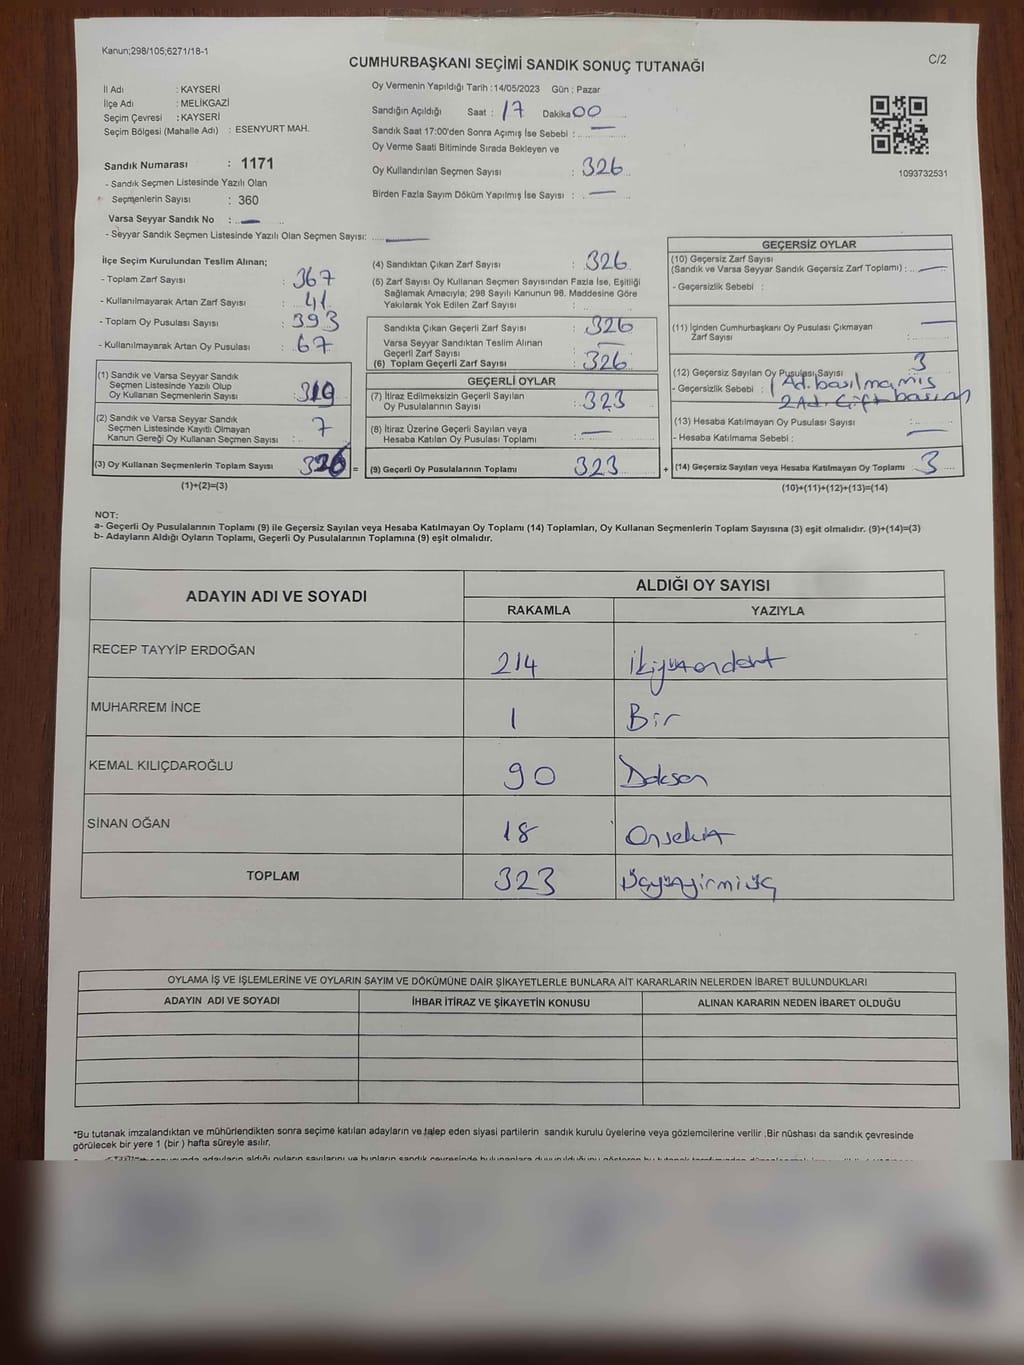 Kanun;298/105;6271/18-1
C/2
CUMHURBAŞKANI SEÇİMİ SANDIK SONUÇ TUTANAĞI
İl Adı : KAYSERİ
İlçe Adı : MELİKGAZİ
Seçim Çevresi : KAYSERİ
Seçim Bölgesi (Mahalle Adı) : ESENYURT MAH.
Sandık Numarası : 1171
- Sandık Seçmen Listesinde Yazılı Olan
Seçmenlerin Sayısı : 360
Varsa Seyyar Sandık No : —
- Seyyar Sandık Seçmen Listesinde Yazılı Olan Seçmen Sayısı: —
Oy Vermenin Yapıldığı Tarih : 14/05/2023 Gün : Pazar
Sandığın Açıldığı Saat : 17 Dakika 00
Sandık Saat 17:00'den Sonra Açımış İse Sebebi : —
Oy Verme Saati Bitiminde Sırada Bekleyen ve
Oy Kullandırılan Seçmen Sayısı : 326
Birden Fazla Sayım Döküm Yapılmış İse Sayısı : —
1093732531
İlçe Seçim Kurulundan Teslim Alınan;
- Toplam Zarf Sayısı : 367
- Kullanılmayarak Artan Zarf Sayısı : 41
- Toplam Oy Pusulası Sayısı : 393
- Kullanılmayarak Artan Oy Pusulası : 67
(1) Sandık ve Varsa Seyyar Sandık
Seçmen Listesinde Yazılı Olup
Oy Kullanan Seçmenlerin Sayısı : 319
(2) Sandık ve Varsa Seyyar Sandık
Seçmen Listesinde Kayıtlı Olmayan
Kanun Gereği Oy Kullanan Seçmen Sayısı : 7
(3) Oy Kullanan Seçmenlerin Toplam Sayısı 326
(1)+(2)=(3)
(4) Sandıktan Çıkan Zarf Sayısı : 326
(5) Zarf Sayısı Oy Kullanan Seçmen Sayısından Fazla İse, Eşitliği
Sağlamak Amacıyla; 298 Sayılı Kanunun 98. Maddesine Göre
Yakılarak Yok Edilen Zarf Sayısı :
Sandıkta Çıkan Geçerli Zarf Sayısı : 326
Varsa Seyyar Sandıktan Teslim Alınan
Geçerli Zarf Sayısı : —
(6) Toplam Geçerli Zarf Sayısı : 326
GEÇERLİ OYLAR
(7) İtiraz Edilmeksizin Geçerli Sayılan
Oy Pusulalarının Sayısı : 323
(8) İtiraz Üzerine Geçerli Sayılan veya
Hesaba Katılan Oy Pusulası Toplamı : —
= (9) Geçerli Oy Pusulalarının Toplamı 323
GEÇERSİZ OYLAR
(10) Geçersiz Zarf Sayısı
(Sandık ve Varsa Seyyar Sandık Geçersiz Zarf Toplamı) : —
- Geçersizlik Sebebi :
(11) İçinden Cumhurbaşkanı Oy Pusulası Çıkmayan
Zarf Sayısı : —
(12) Geçersiz Sayılan Oy Pusulası Sayısı 3
- Geçersizlik Sebebi : 1 Ad. basılmamış
2 Ad. Çift basım
(13) Hesaba Katılmayan Oy Pusulası Sayısı : —
- Hesaba Katılmama Sebebi :
+ (14) Geçersiz Sayılan veya Hesaba Katılmayan Oy Toplamı 3
(10)+(11)+(12)+(13)=(14)
NOT:
a- Geçerli Oy Pusulalarının Toplamı (9) ile Geçersiz Sayılan veya Hesaba Katılmayan Oy Toplamı (14) Toplamları, Oy Kullanan Seçmenlerin Toplam Sayısına (3) eşit olmalıdır. (9)+(14)=(3)
b- Adayların Aldığı Oyların Toplamı, Geçerli Oy Pusulalarının Toplamına (9) eşit olmalıdır.
ADAYIN ADI VE SOYADI
ALDIĞI OY SAYISI
RAKAMLA YAZIYLA
RECEP TAYYİP ERDOĞAN 214 İkiyüzondört
MUHARREM İNCE 1 Bir
KEMAL KILIÇDAROĞLU 90 Doksan
SİNAN OĞAN 18 Onsekiz
TOPLAM 323 Üçyüzyirmiüç
OYLAMA İŞ VE İŞLEMLERİNE VE OYLARIN SAYIM VE DÖKÜMÜNE DAİR ŞİKAYETLERLE BUNLARA AİT KARARLARIN NELERDEN İBARET BULUNDUKLARI
ADAYIN ADI VE SOYADI İHBAR İTİRAZ VE ŞİKAYETİN KONUSU ALINAN KARARIN NEDEN İBARET OLDUĞU
*Bu tutanak imzalandıktan ve mühürlendikten sonra seçime katılan adayların ve talep eden siyasi partilerin sandık kurulu üyelerine veya gözlemcilerine verilir .Bir nüshası da sandık çevresinde
görülecek bir yere 1 (bir ) hafta süreyle asılır.